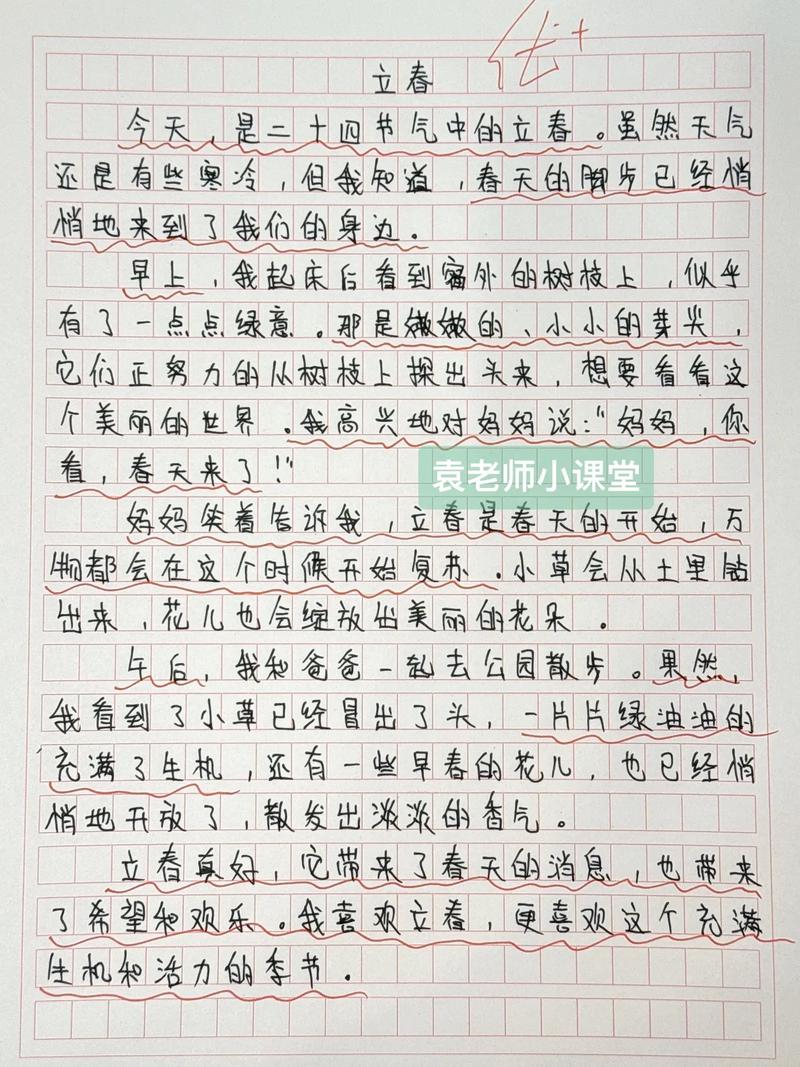 优+
立春
今天，是二十四节气中的立春。虽然天气
还是有些寒冷，但我知道，春天的脚步已经悄
悄地来到了我们的身边。
早上，我起床后看到窗外的树枝上，似乎
有了一点点绿意。那是嫩嫩的、小小的芽尖，
它们正努力的从树枝上探出头来，想要看看这
个美丽的世界。我高兴地对妈妈说：“妈妈，你
看，春天来了！”
袁老师小课堂
妈妈笑着告诉我，立春是春天的开始，万
物都会在这个时候开始复苏。小草会从土里钻
出来，花儿也会绽放出美丽的花朵。
午后，我和爸爸一起去公园散步。果然，
我看到了小草已经冒出了头，一片片绿油油的
充满了生机，还有一些早春的花儿，也已经悄
悄地开放了，散发出淡淡的香气。
立春真好，它带来了春天的消息，也带来
了希望和欢乐。我喜欢立春，更喜欢这个充满
生机和活力的季节。